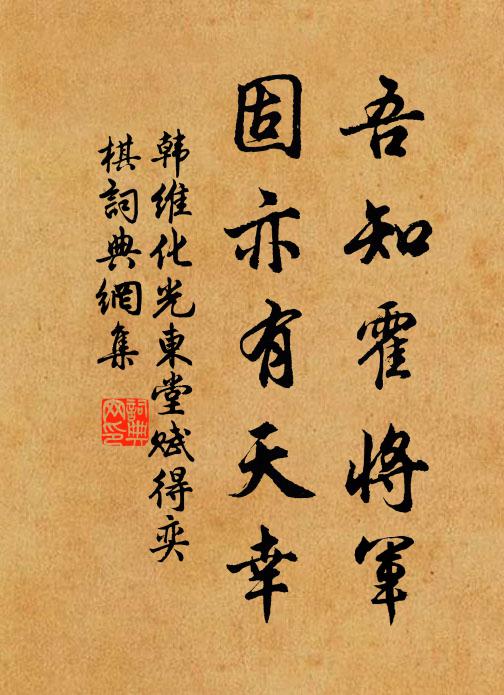 吾知霍將軍
固亦有天幸
韩維化光東堂賦得奕
棋詞典網集
詞典網印